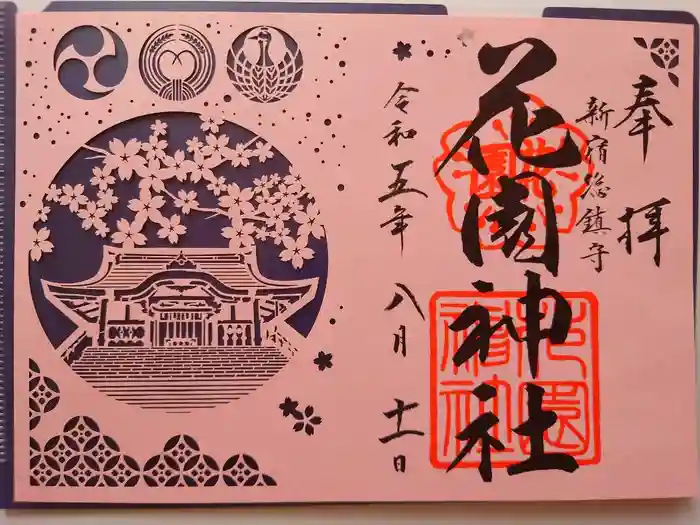 奉拝
新宿総鎮守
花園神社
令和五年 八月 十一日